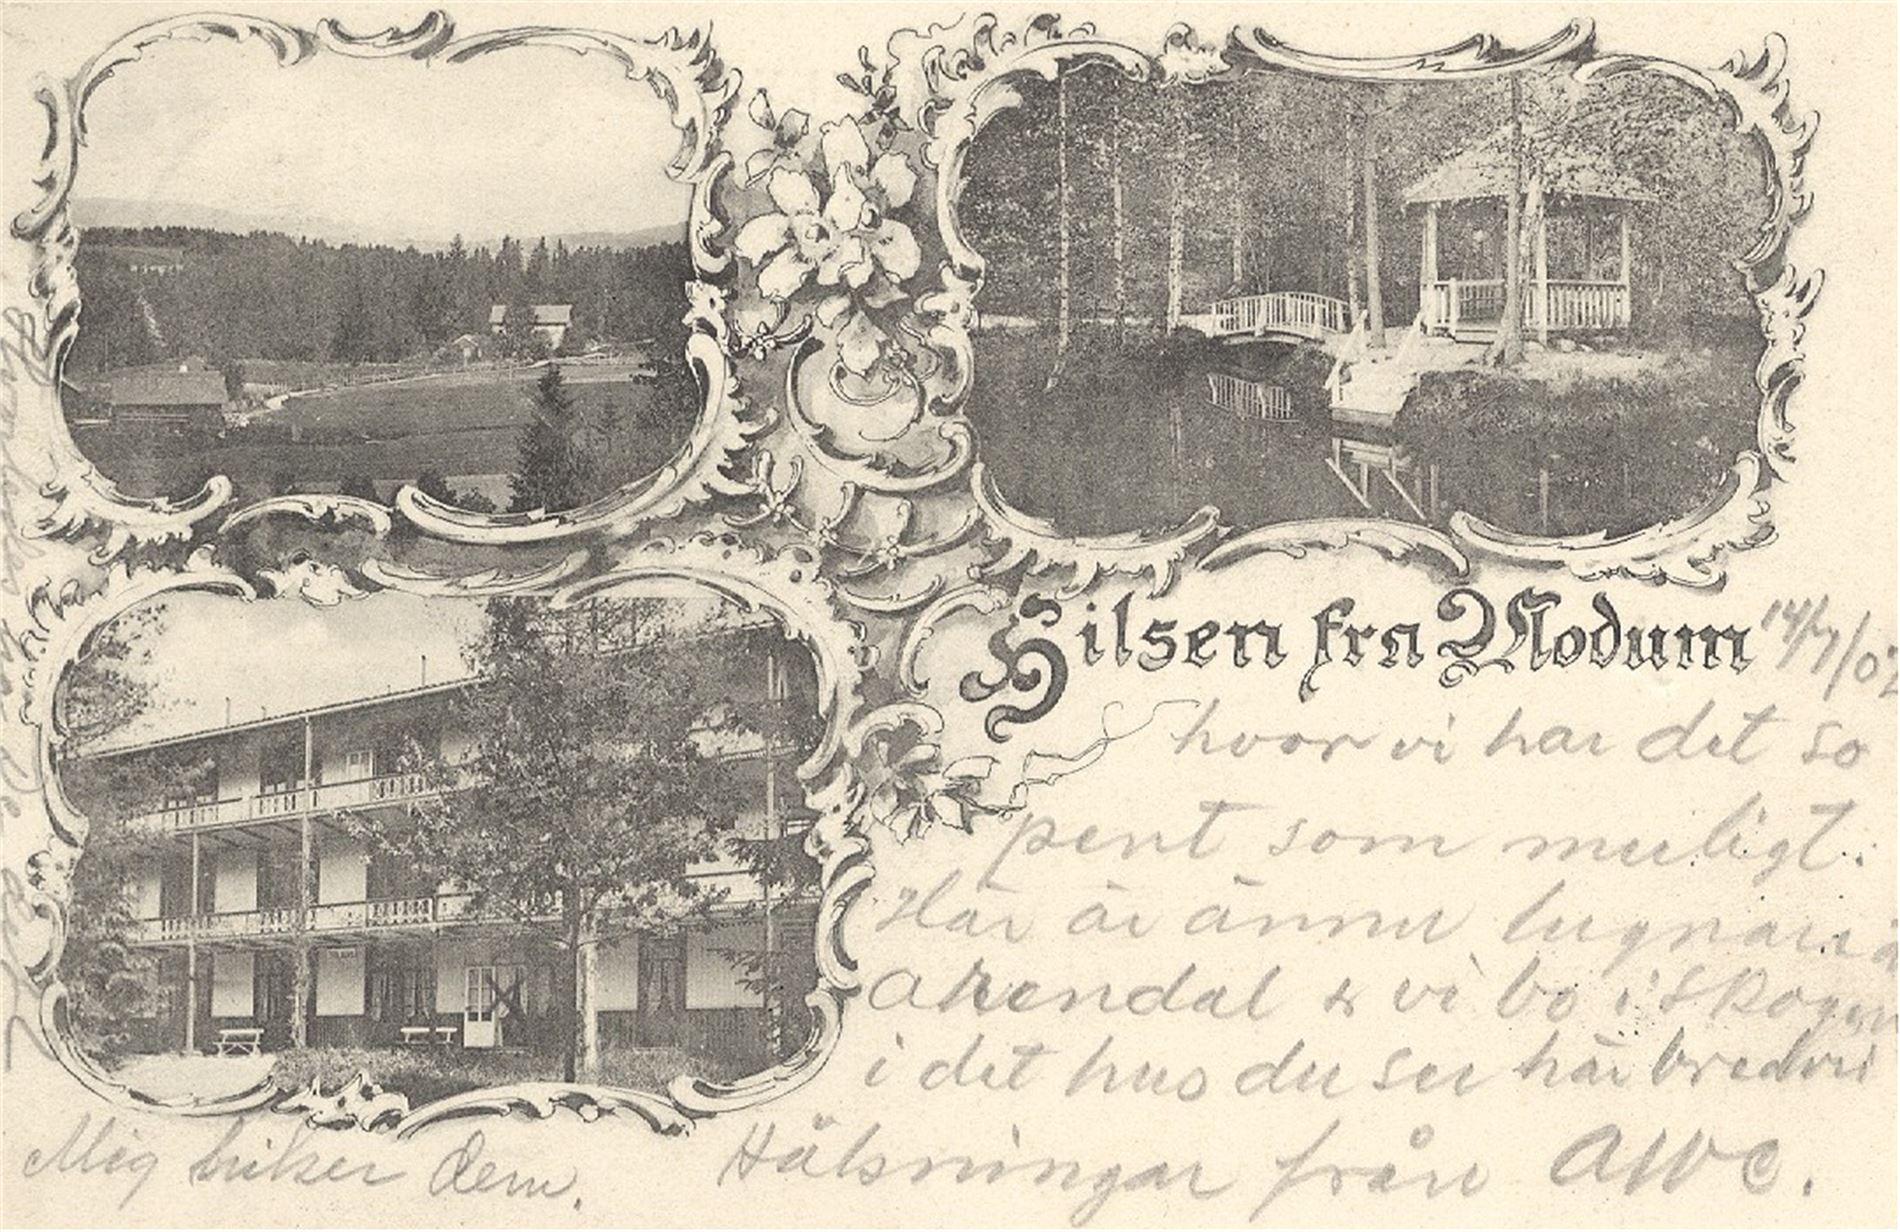 Hilsen fra Modum 14/7/02
hvor vi har det so
pent som muligt.
Här är ännu lugnare
Arendal & vi bo i skogen
i det hus du ser här bredvi
Hälsningar från AWC.
Mig huker dem.